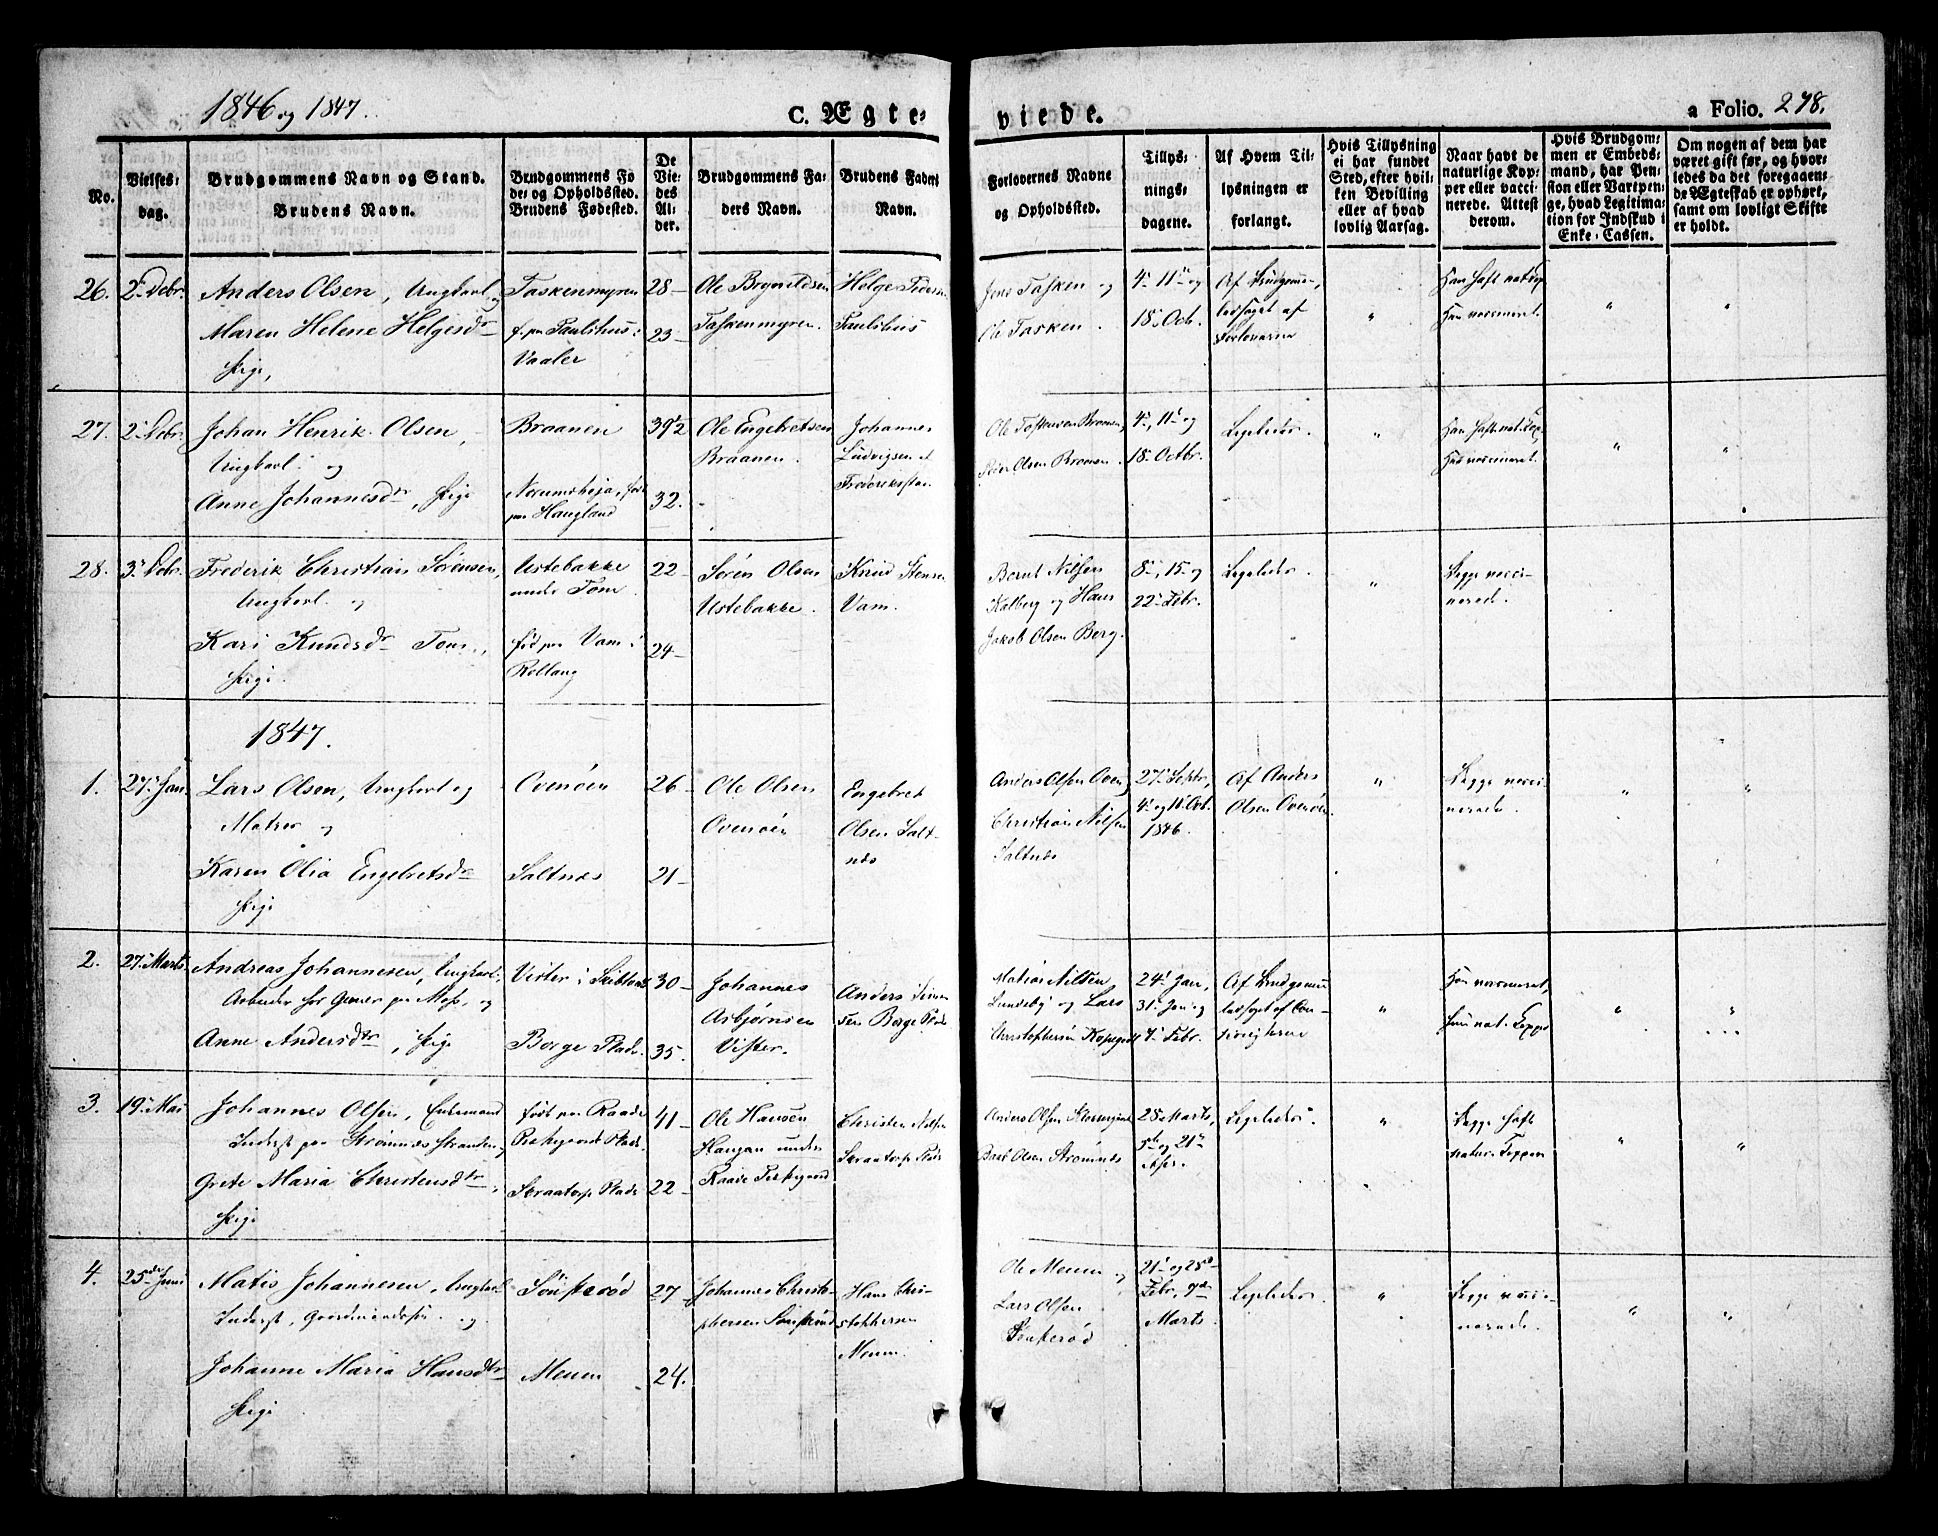 1846 og 1847.
C. Ægte-
viede.
a Folio. 278.
No.
Vielses-
dag.
Brudgommens Navn og Stand.
Brudens Navn.
Brudgommens Fø
de- og Opholdssted.
Brudens Fødested.
De
Vie-
des
Al-
der.
Brudgommens Fa-
ders Navn.
Brudens Faders
Navn.
Forlovernes Navne
og Opholdssted.
Tillys-
nings-
dagene.
Af Hvem Til-
lysningen er
forlangt.
Hvis Tillysning
ei har fundet
Sted, efter hvil-
ken Bevilling
eller af hvad
lovlig Aarsag.
Naar havt de
naturlige Kop-
per eller vacci-
nerede. Attest
derom.
Hvis Brudgom-
men er Embeds-
mand, har Pen-
sion eller Vartpen-
ge, hvad Legitima-
tion for Indskud i
Enke-Cassen.
Om nogen af dem har
været gift før, og hvor-
ledes da det foregaaen-
de Ægteskab er ophørt,
samt om lovligt Skifte
er holdt.
26.
Anders Olsen, Ungkarl og
Maren Helene Helgesdr
Pige,
Taskenmyren
f. paa Paulshus i
Vaaler
28
23
Ole Brynildsen
Taskenmyren.
Helge
Paulshus
Jens Tasken og
Ole Tasken.
4, 11 og
18. Oct.
Af Brudgommen,
ledsaget af
Forloverne
27.
Johan Henrik Olsen,
Ungkarl og
Anne Johannesdr, Pige
Braanen
paa Haugland
39½
32.
Ole Engebretsen
Braanen.
Johannes
Ludvigsen
Frederikstad
Ole
4, 11 og
18. Octbr.
Ligeledes.
28.
Frederik Christian Sørensen,
Ungkarl. og
Kari Knudsdr Tom,
Pige.
Ustebakke
under Tom.
fød paa Vam i
Rollaug
22
24
Søren Olsen
Ustebakke.
Knud Stensen
Vam.
Bernt Nilsen
Kalberg og Hans
Jakob Olsen Berg.
8, 15 og
22. Febr.
Ligeledes.
Begge vacci-
nerede.
1847.
1.
27. Jan
Lars Olsen, Ungkarl og
Matros og
Karen Olia Engebretsdr
Pige
Ovenøen
Saltnæs
26
21
Ole Olsen
Ovenøen
Engebret
Olsen Salt-
næs
Anders Olsen Oven,
Christian Nilsen
Saltnæs
27. Septbr,
4 og 11. Oct.
1846.
Af Anders
Olsen Ovenøen.
Begge vacci-
nerede.
2.
27. Marts
Andreas Johannesen, Ungkarl.
Arbeider paa Moss, og
Anne Andersdtr, Pige
Vister i Skibtvedt
Borge Plads.
30
35.
Johannes
Asbjørnsen
Vister.
Anders
Borge Plads
Matias Nilsen
Lundeby og Lars
Christophersen
24. Jan,
31. Jan og
7. Febr.
Af Brudgommen
ledsaget af
Han vaccineret,
hun nat. Kopper
3.
19. Mai
Johannes Olsen, Enkemand
Inderst paa Strømnæs Stranden, og
Grete Maria Christensdtr,
Pige
født paa Raade
Præstegaards Plads.
Skraatorp Plads
41
22
Ole Hansen
Haugan under
Raade Præstegaard
Christen Nilsen
Skraatorp Plads
Anders Olsen
Olsen Strømnæs
28. Marts,
5te og 21.
Apr.
Ligeledes.
Begge haft
natur. Kopper
4.
25de Juni
Matis Johannesen, Ungkarl
Inderst, Gaardmandssøn. og
Johanne Maria Hansdtr
Pige
Sønsterød
Menm
27
24.
Johannes Christo-
phersen Sønsterød
Hans Chri-
stophersen
Ole og
Lars Olsen
Sønsterød
21 og 28de
Febr,
Marts.
Ligeledes.
Begge vacci-
nerede.